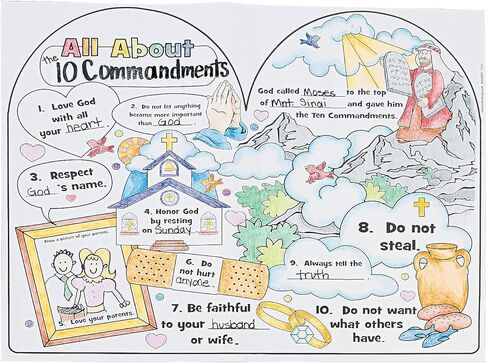 All About
the 10 Commandments
God called Moses to the top
of Mnt Sinai and gave him
the Ten Commandments.
1. Love God
with all
your heart.
2. Do not let anything
become more important
than God.
3. Respect
God's name.
4. Honor God
by resting
on Sunday.
Draw a picture of your parents.
5. Love your parents.
6. Do
not hurt
anyone.
7. Be faithful
to your husband
or wife.
8. Do not
steal.
9. Always tell the
truth
10. Do not want
what others
have.